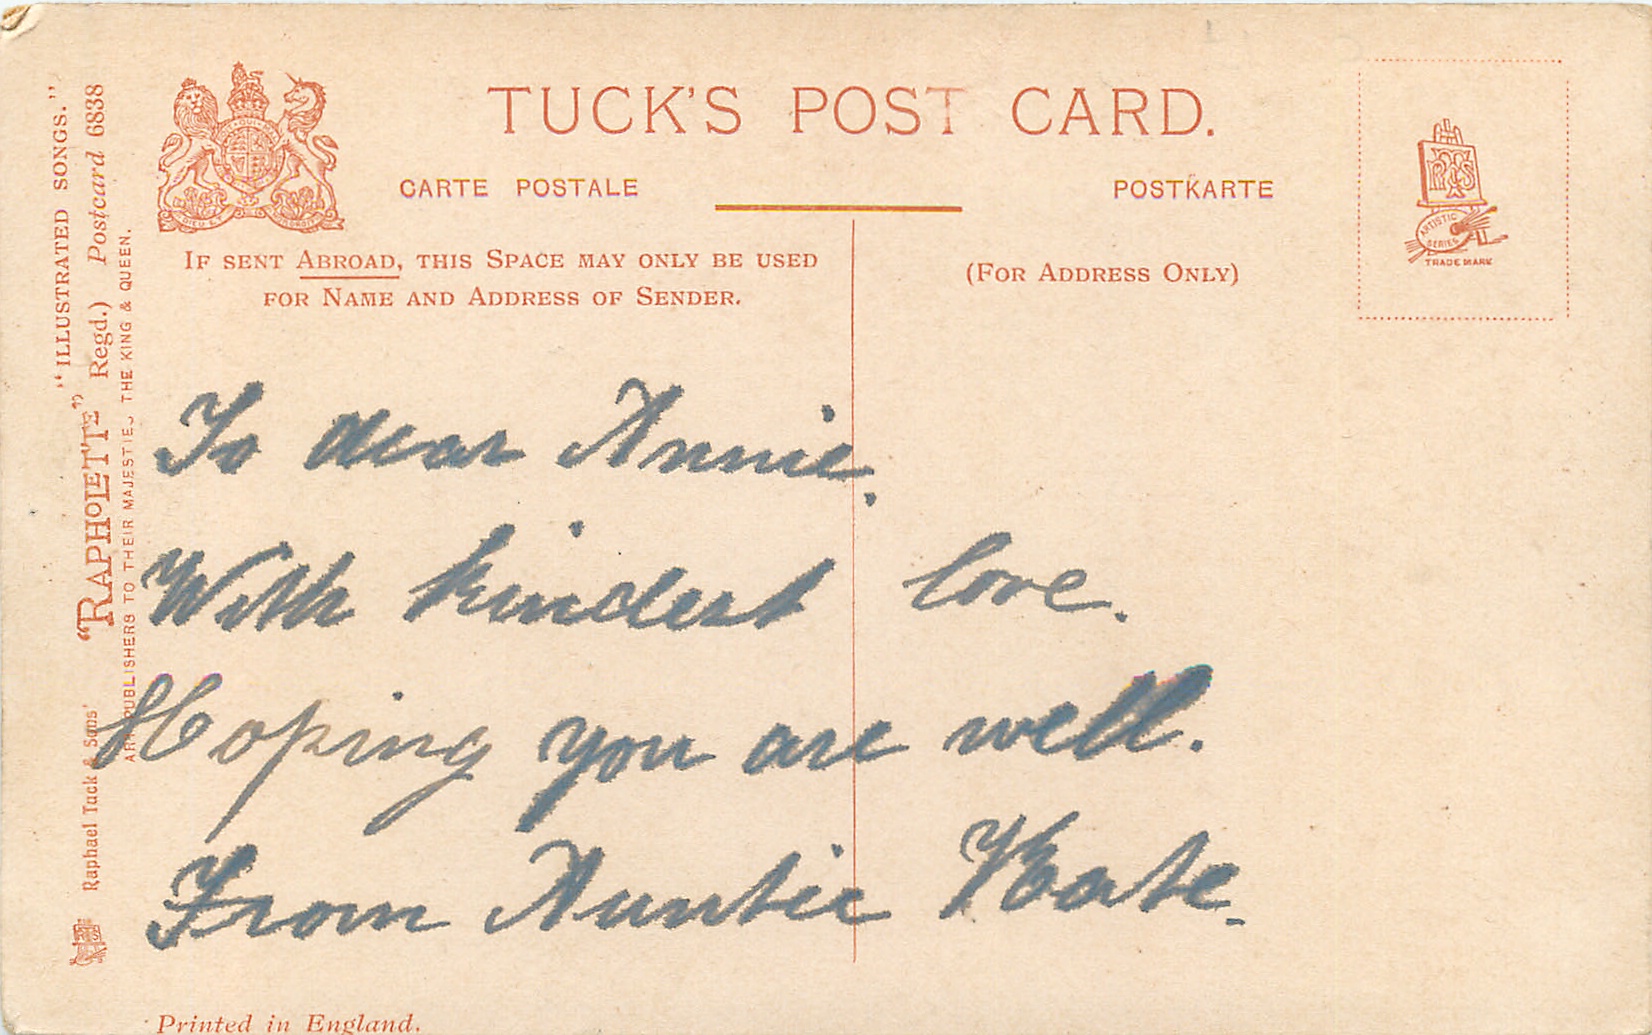 TUCK'S POST CARD.
CARTE POSTALE
POSTKARTE
IF SENT ABROAD, THIS SPACE MAY ONLY BE USED
FOR NAME AND ADDRESS OF SENDER.
(FOR ADDRESS ONLY)
ARTISTIC
SERIES
TRADE MARK
To dear Annie.
With kindest love.
Hoping you are well.
From Auntie Kate.
"ILLUSTRATED SONGS."
Raphael Tuck & Sons' "RAPHOLETTE" Regd.) Postcard 6838
ART PUBLISHERS TO THEIR MAJESTIES THE KING & QUEEN.
Printed in England.